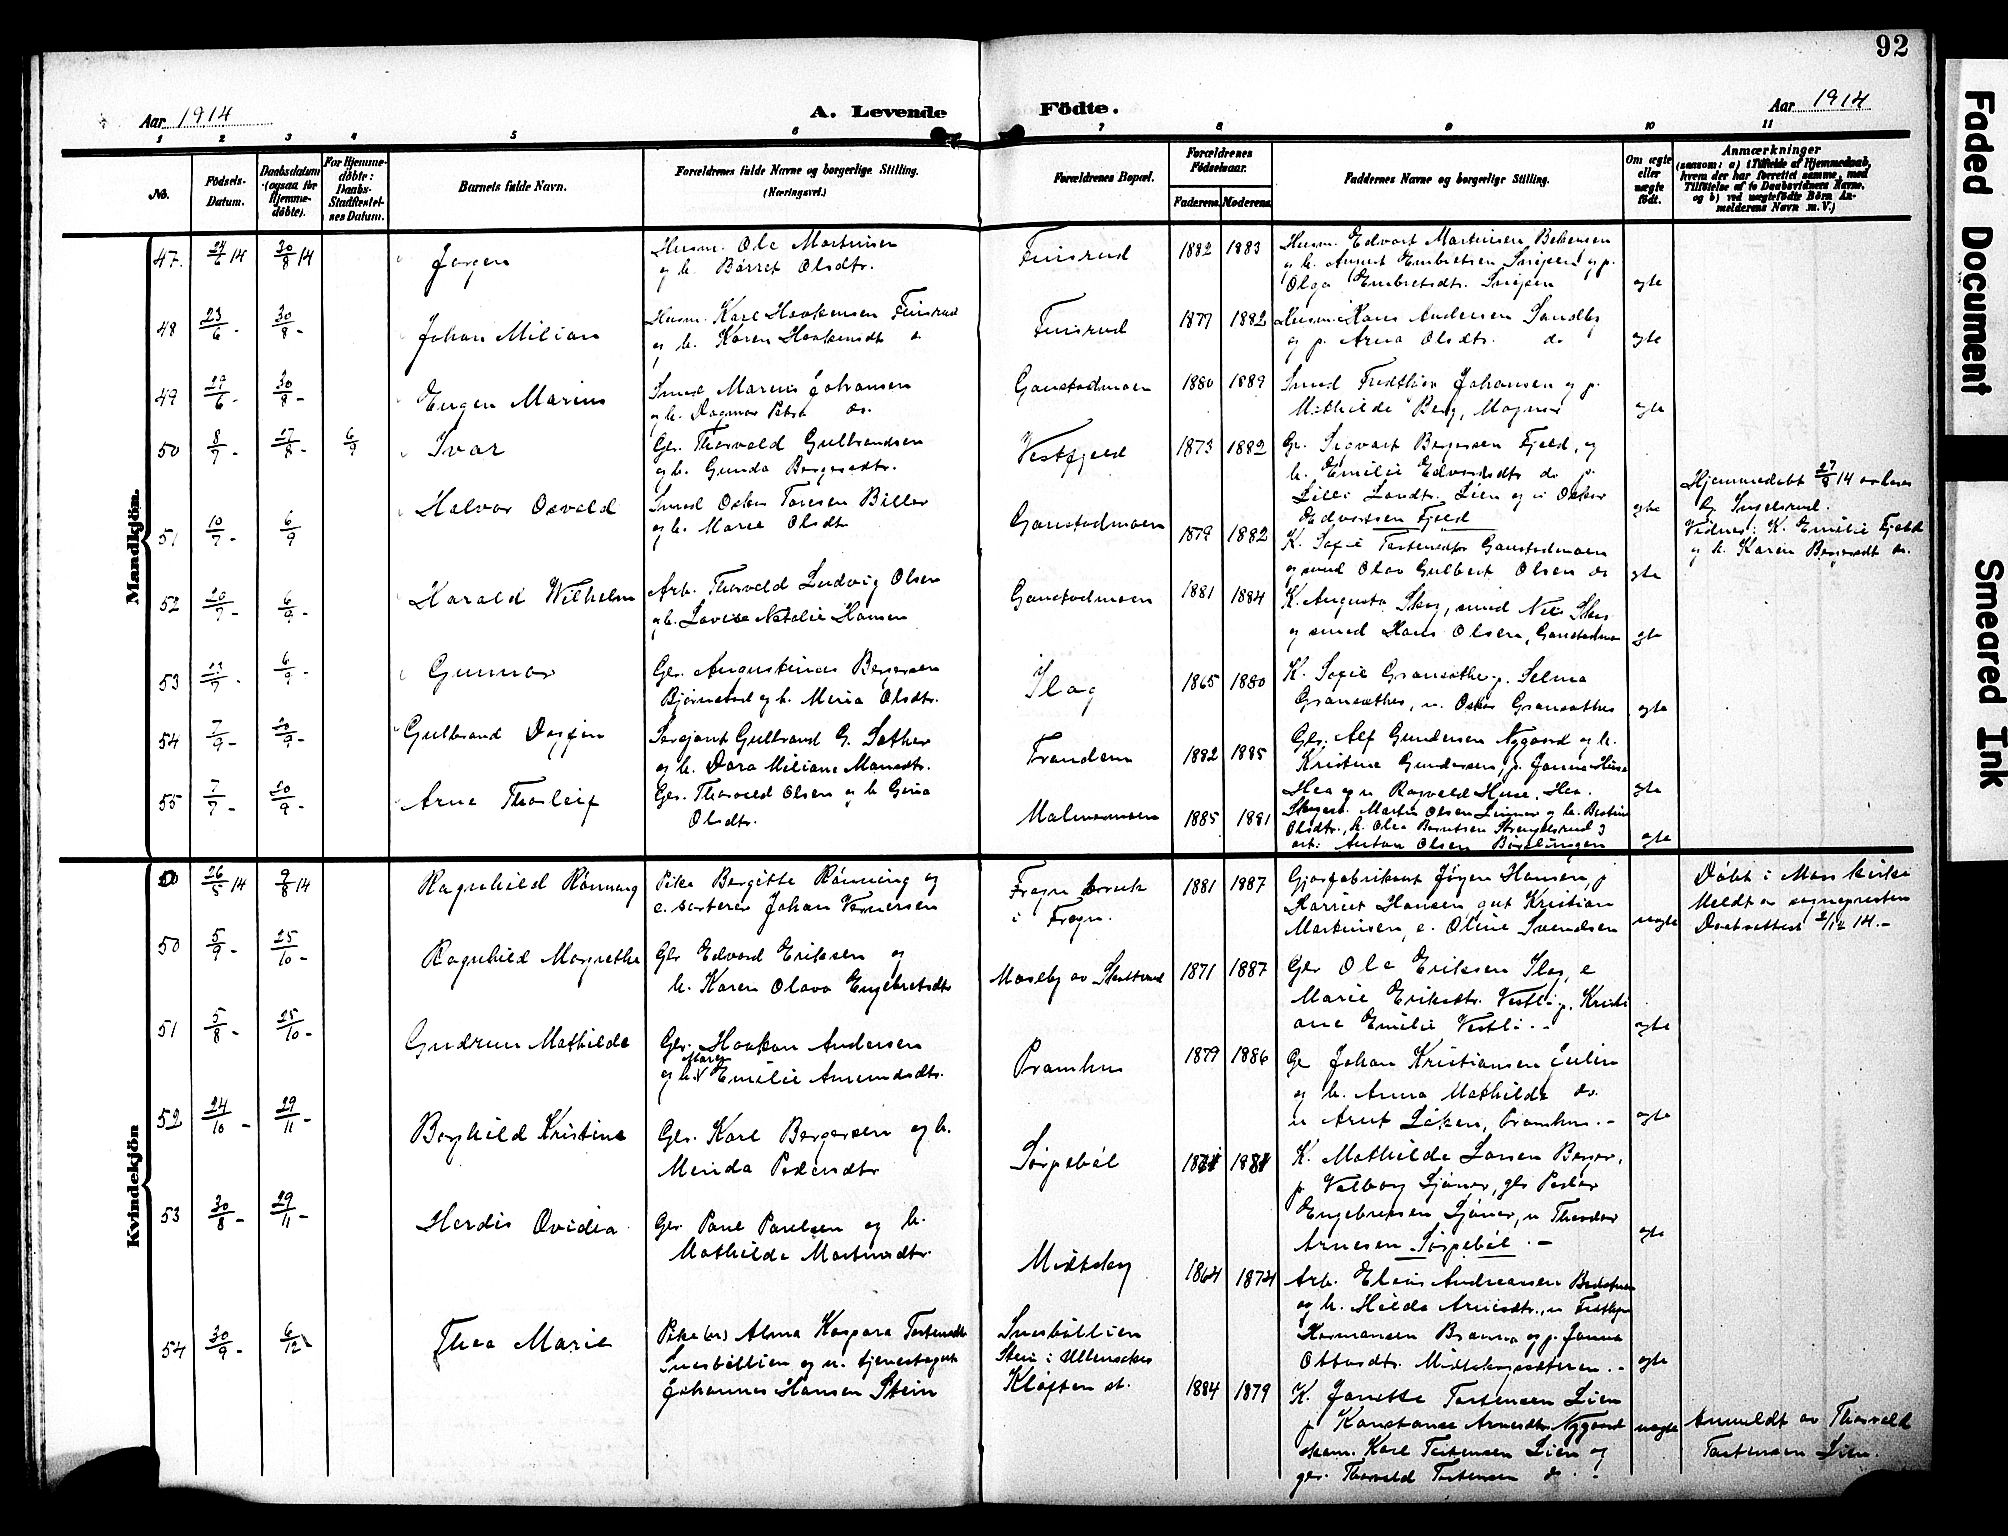 92
Aar 1914
A. Levende Födte.
Aar 1914
1 2 3 4 5 6 7 8 9 10 11
No.
Födsels-
Datum.
Daabsdatum
(ogsaa for
Hjemme-
døbte).
For Hjemme-
døbte:
Daabs-
Stadfæstel-
ses Datum.
Barnets fulde Navn.
Forældrenes fulde Navne og borgerlige Stilling.
(Næringsvei.)
Forældrenes Bopæl.
Forældrenes
Fødselsaar.
Faderens. Moderens.
Faddernes Navne og borgerlige Stilling.
Om ægte
eller
uægte
født.
Anmærkninger
(saasom: a) i Tilfælde af Hjemmedaab,
hvem der har forrettet samme, med
Tilføielse af to Daabsvidners Navne,
og b) ved uægtefødte Børn An-
melderens Navn m. V.)
Mandkjön.
47. 24/6 14 30/8 14
Jørgen
Husm. Ole Martinsen
og h. Børret Olsdtr.
Finsrud
1882 1883
Husm. Edvart Martinsen
Olga Embretsdtr. Snipen
egte
48 23/6 - 30/8 -
Johan Milian
Husm. Karl Haakensen Finsrud
og h. Karen Haakensdt
Finsrud
1877 1882
Husm. Hans Andersen Sandby
og p. Arna Olsdtr. do
egte
49 29/6 - 30/8 -
Eugen Marius
Smed Marius Johansen
og h. Dagmar do.
Ganstadmoen
1880 1889
Smed Fridthjov Johansen og p.
Mathilde Berg, Magnor
egte
50 8/7 - 27/8 - 6/9
Ivar
Gr. Thorvald Gulbrandsen
og h. Gunda Borgersdtr.
Vestfjeld
1873 1882
Gr. Sigvart Borgersen Fjeld, og
h. Emilie Edvardsdtr do p.
Lilli Landtr. Lien og u Oskar
Edvartsen Fjeld
egte
Hjemmedøbt 27/8 14 av
G. Ingelsrud.
Vidner: K. Emilie Fjeld
og h. Karen Borgersdt do.
51 10/7 - 6/9
Halvor Osvald
Smed Oskar Toresen Biller
og h. Marie Olsdt
Ganstadmoen
1879 1882
K. Sofie Torstensdtr Ganstadmoen
og smed Olav Gulbert Olsen do
egte
52 20/7 - 6/9 -
Harald Wilhelm
Arb. Thorvald Ludvig Olsen
og h. Lovise Natalie Hansen
Ganstadmoen
1881 1884
K. Augusta Skog, smed Nils Skog
og smed Hans Olsen, Ganstadmo
egte
53 6/9 -
Gunnar
Gr. Augustinus Borgersen
Bjørnstad og h. Mina Olsdtr.
Slag
1865 1880
K. Sofie p. Selma
egte
54 7/9 - 20/9 -
Gulbrand Dagfin
Sersjant Gulbrand G. Sæther
og h. Dora Miliane Mansdtr.
Trandem
1882 1885
Gr. Alf Gundersen Nygaard og h.
Kristine Gundersen, p. Janna Huse
Hea og u Ragvald Huse, Hea.
egte
55 7/7 - 20/9 -
Arne Thorleif
Gr. Thorvald Olsen og h Gina
Olsdtr.
Malmermoen
1885 1881
Martin Olsen Linner og h.
Olsdtr, Strengelsrud
arb. Anton Olsen
egte
Kvindekjön
26/5 14 9/8 14
Ragnhild Rønning
Pike Bergitte Rønning og
e. sorterer Johan Vernersen
Frogn bruk
i Frogn.
1881 1887
Gjørfabrikant Jørgen Hansen, p
Harriet Hansen gut Kristian
Martinsen, e. Oline Svendsen
uegte
Døbt i Moss kirke
Meldt av sognepresten
Daabsattest 2/12 14. -
50 5/9 - 25/10 -
Ragnhild Margrethe
Gr Edvard Eriksen og
h. Karen Olava Engebretsdtr
Moseby av Skotterud
1871 1887
Gr Ole Eriksen Slag, e
Marie Eriksdtr. Vestli p. Kristi
ane Emilie Vestli. -
egte
51 5/8 - 25/10 -
Gudrun Mathilde
Gr. Haakon Andersen
og h. Maren Emilie Amundsdtr.
Pramhus
1879 1886
Gr Johan Kristiansen
og h. Anna Mathilde do.
u Arnt Løken, Pramhus. -
egte
52 24/10 - 29/11 -
Borghild Kristine
Gr. Karl Borgersen og h.
Minda Pedersdtr
Sørpebøl
1881
K. Mathilde Larsen Berger,
p. Valborg Sjøner, gr Peder
Engebretsen Sjøner, u Theodor
Arnesen Sørpebøl. -
egte
53 30/8 - 29/11 -
Herdis Ovidia
Gr. Paul Paulsen og h.
Mathilde Martinsdtr.
Midtskog
1864 1874
Arb. Elais Andreassen
og h. Hilda Arnesdtr., u
Hermansen Branna og p. Janna
Ottarsdtr. Midtskogsæteren. -
egte
54 30/9 - 6/12
Thea Marie
Pike Alma Kaspara Torstensdtr
Snesbøllien og u. tjenestegut
Johannes Hansen Stein
Snesbøllien
Stein i Ullensaker
Kløften st.
1884 1879
K. Janette Torstensen Lien
p Konstanse Arnesdtr. Nygaard
skom. Karl Torstensen Lien og
gr. Thorvald Torstensen do. -
uegte
Anmeldt av Thorvald
Torstensen Lien.
Faded Document
Smeared Ink